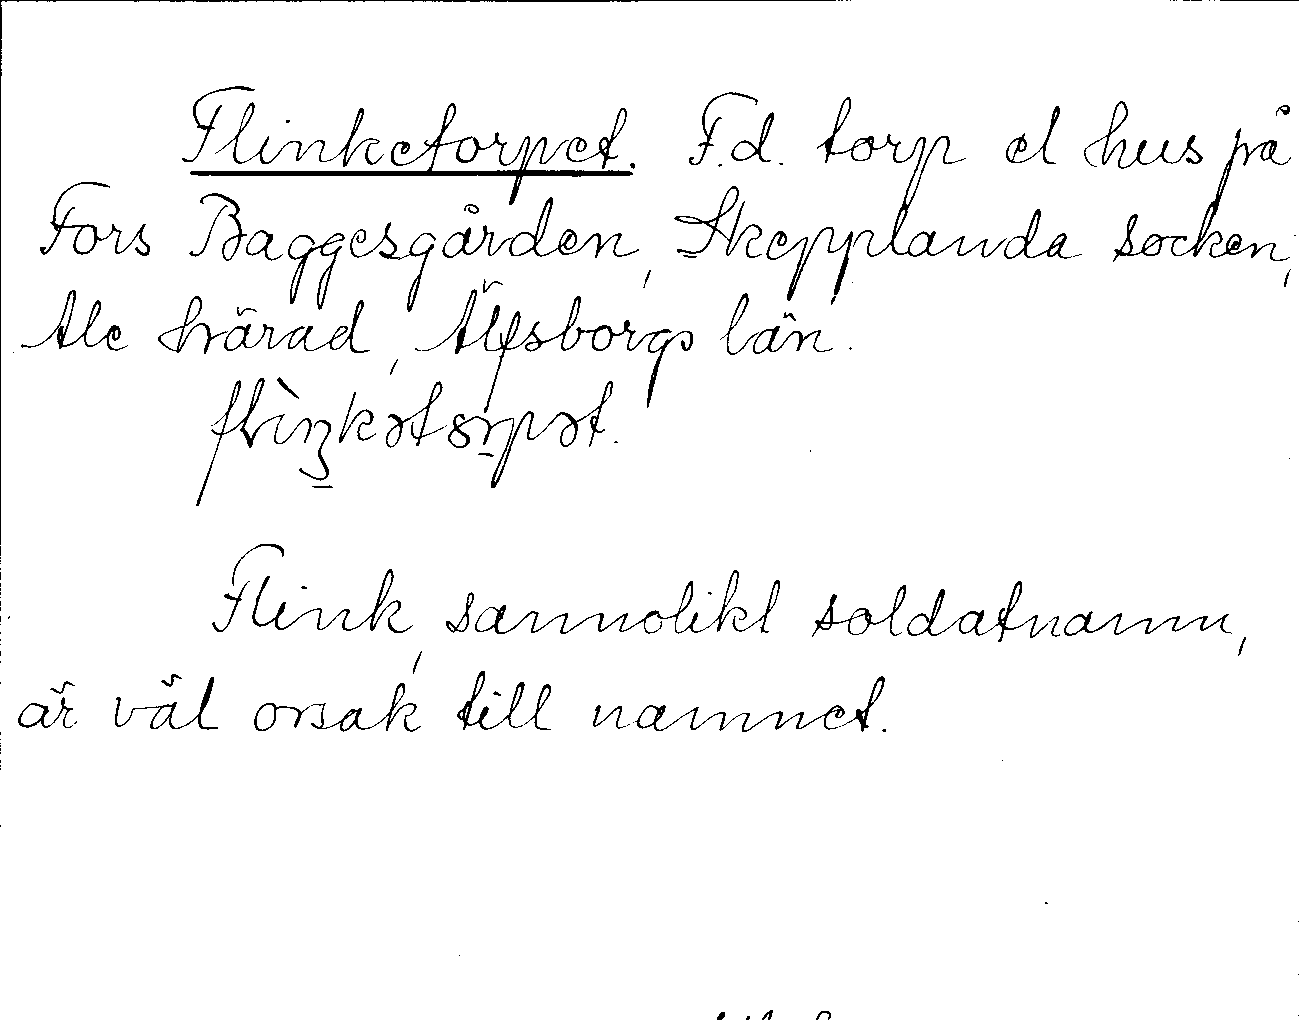 Flinketorpet. F.d. torp el hus på
Fors Baggesgården, Skepplanda socken,
Ale härad, Älfsborgs län.
Flink, sannolikt soldatnamn,
är väl orsak till namnet.